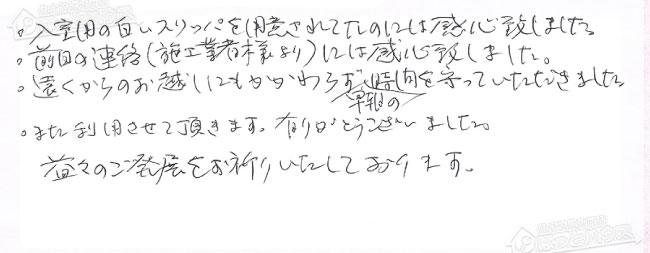 ・入室用の白いスリッパを用意されてたのには感心致しました
・前日の連絡(施工業者様より)には感心致しました。
・遠くからのお越しにもかかわらず早朝の時間を守っていただきました
・また利用させて頂きます。有りがとうございました。
益々のご発展をお祈りいたしております。